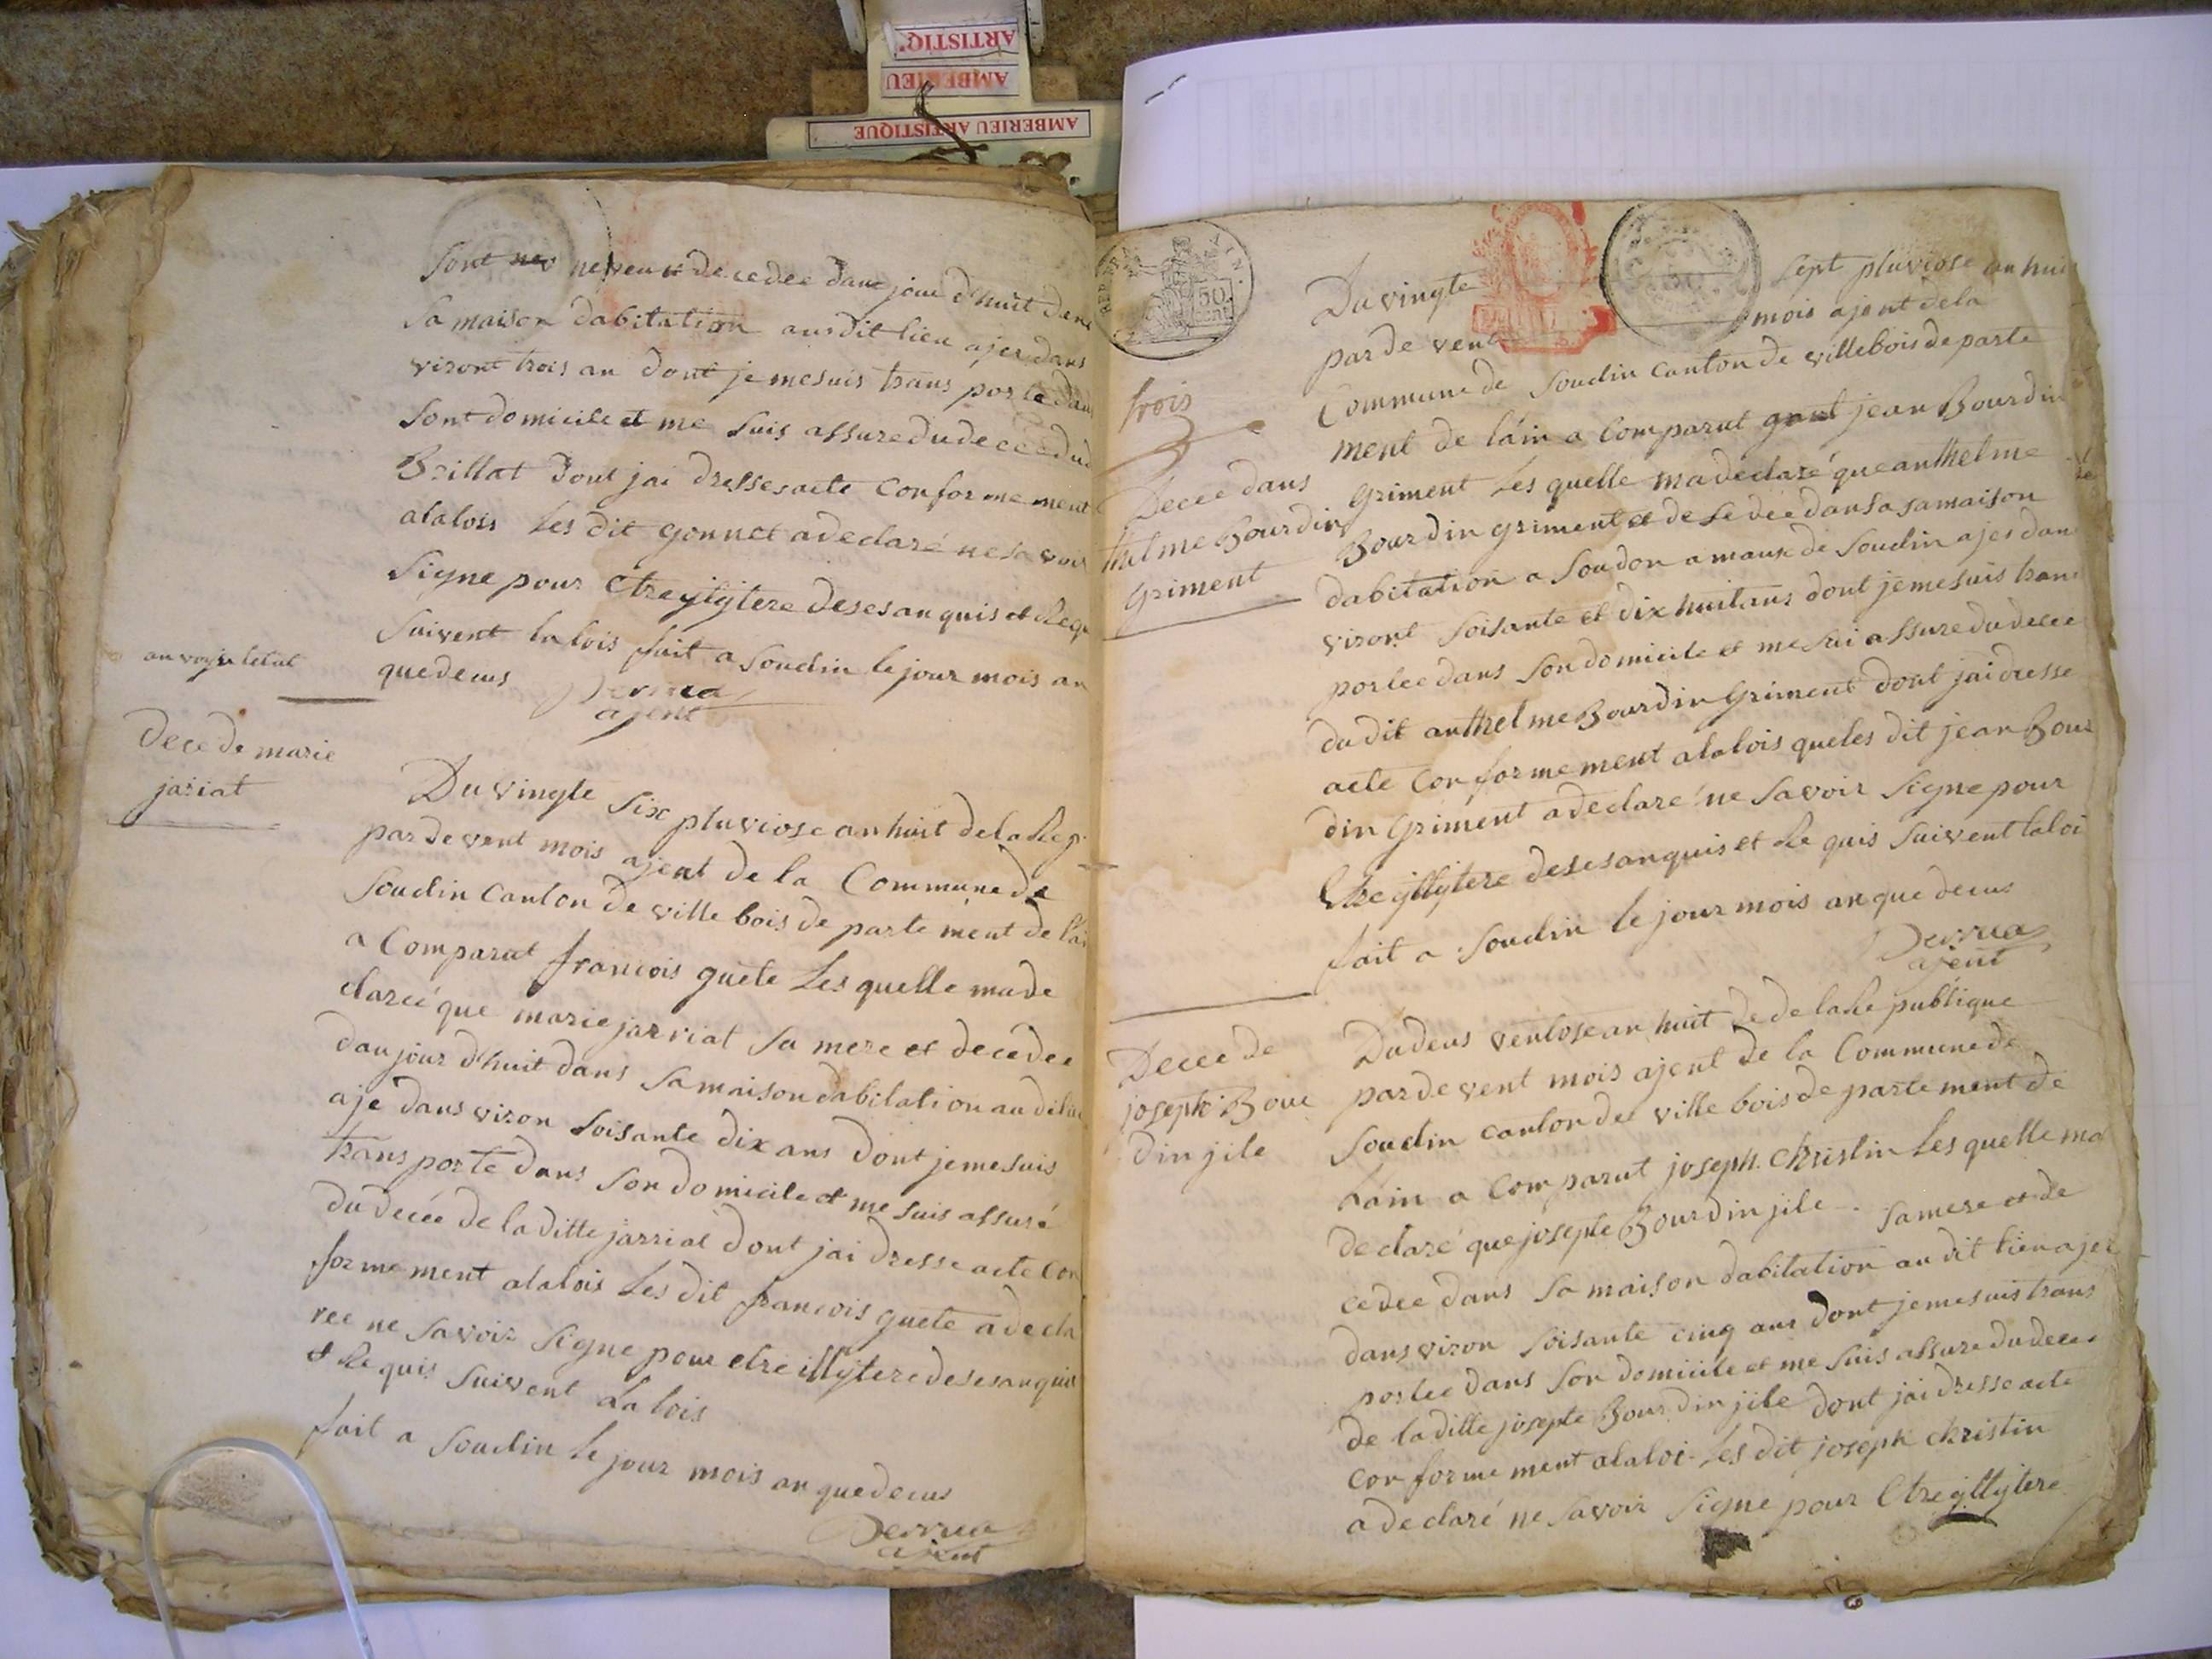 ARTISTIQ
AMBERIEU
AMBERIEU ARTISTIQUE
sont neveu decedee dans jour d'huit dans
sa maison dabitation audit lieu ajer dans
viront trois an dont je me suis trans porte dans
sont domicile et me suis assure du decee dud
Brillat dont jai dresses acte conforme ment
alalois les dit gonnet a declaré ne savoir
signe pour etre ylytere deses anquis et Requ
suivent la lois fait a soudin le jour mois an
quedecus
Derrua
ajent
Dece de marie
jariat
Du vingte six pluviose an huit de la Rep
par devent mois ajent de la Commune de
soudin canton de ville bois de parte ment de l'ai
a Comparut francois guete les quelle ma de
clareé que marie jarriat sa mere et decedee
daujour d'huit dans sa maison dabitation au dit lieu
aje dans viron soisante dix ans dont je me suis
trans porte dans son domicile et me suis assuré
du decée de la ditte jarriat dont jai dresse acte con
forme ment alalois les dit francois guete a decla
ree ne savoir signe pour etre illytere deses anquis
et Requis suivent la lois
fait a soudin le jour mois an quedecus
Derrua
ajent
50
cent.
trois
Du vingte sept pluviose an huit
par de vent mois ajent de la
Commune de soudin canton de villebois de parte
ment de l'ain a Comparut jean Bourdin
griment les quelle ma declaré que anthelme
Bourdin griment et de ce dée dans sa maison
dabitation a soudon a maux de soudin ajes dan
viront soisante et dix huit ans dont je me suis trans
portee dans son domicile et me sui assure du decee
du dit anthelme Bourdin griment dont jai dresse
acte conforme ment alalois que les dit jean Bour
din griment a declaré ne savoir signe pour
etre yllytere deses anquis et Re quis suivent la loi
fait a soudin le jour mois an que decus
Derrua
ajent
Decee dans
thelme Bourdin
griment
Decee de
joseph Bour
din jile
Du deus ventose an huit de de la Re publique
par de vent mois ajent de la Commune de
soudin canton de ville bois de parte ment de
lain a Comparut joseph christin les quelle ma
declaré que josepte Bourdin jile sa mere et de
cedee dans sa maison dabitation au dit lieu ajer
dans viron soisante cinq ans dont je me suis trans
portee dans son domicile et me suis assure du decee
de la ditte josepte Bourdin jile dont jai dresse acte
conforme ment alaloi les dit joseph christin
a declaré ne savoir signe pour etre yllytere